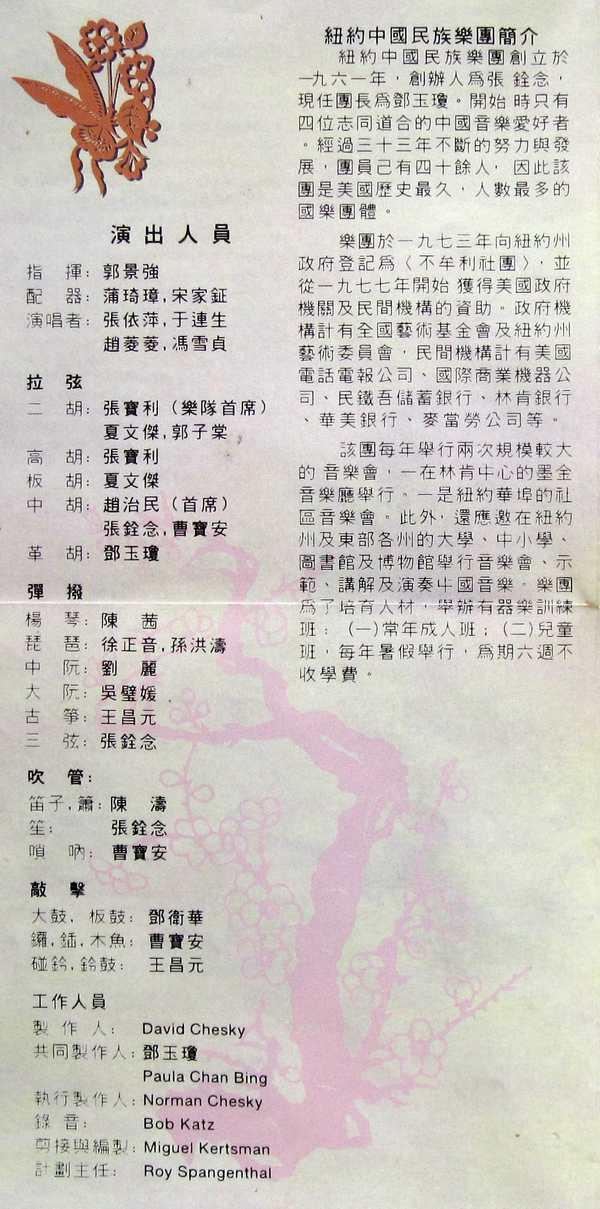 演出人員
指 揮: 郭景強
配 器: 蒲琦璋,宋家鉦
演唱者: 張依萍,于連生
趙菱菱,馮雪貞
拉 弦
二 胡: 張寶利(樂隊首席)
夏文傑,郭子棠
高 胡: 張寶利
板 胡: 夏文傑
中 胡: 趙治民(首席)
張銓念,曹寶安
革 胡: 鄧玉瓊
彈 撥
楊 琴: 陳 茜
琵 琶: 徐正音,孫洪濤
中 阮: 劉 麗
大 阮: 吳璧媛
古 箏: 王昌元
三 弦: 張銓念
吹 管:
笛子,簫: 陳 濤
笙: 張銓念
嗩 吶: 曹寶安
敲 擊
大鼓, 板鼓: 鄧衛華
鑼,鍤,木魚: 曹寶安
碰鈴,鈴鼓: 王昌元
工作人員
製 作 人: David Chesky
共同製作人: 鄧玉瓊
Paula Chan Bing
執行製作人: Norman Chesky
錄 音: Bob Katz
剪接與編製: Miguel Kertsman
計劃主任: Roy Spangenthal
紐約中國民族樂團簡介
紐約中國民族樂團創立於
一九六一年，創辦人爲張 銓念，
現任團長爲鄧玉瓊。開始 時只有
四位志同道合的中國音樂愛好者
。經過三十三年不斷的努力與發
展，團員己有四十餘人，因此該
團是美國歷史最久，人數最多的
國樂團體。
樂團於一九七三年向紐約州
政府登記爲〈不牟利社團〉，並
從一九七七年開始 獲得美國政府
機關及民間機構的資助。政府機
構計有全國藝術基金會及紐約州
藝術委員會，民間機構計有美國
電話電報公司、國際商業機器公
司、民鐵吾儲蓄銀行、林肯銀行
、華美銀行、麥當勞公司等。
該團每年舉行兩次規模較大
的 音樂會，一在林肯中心的墨金
音樂廳舉行。一是紐約華埠的社
區音樂會。此外，還應邀在紐約
州及東部各州的大學、中小學、
圖書館及博物館舉行音樂會、示
範、講解及演奏中國音樂。樂團
爲了培育人材，舉辦有器樂訓練
班：(一)常年成人班；(二)兒童
班，每年暑假舉行，爲期六週不
收學費。